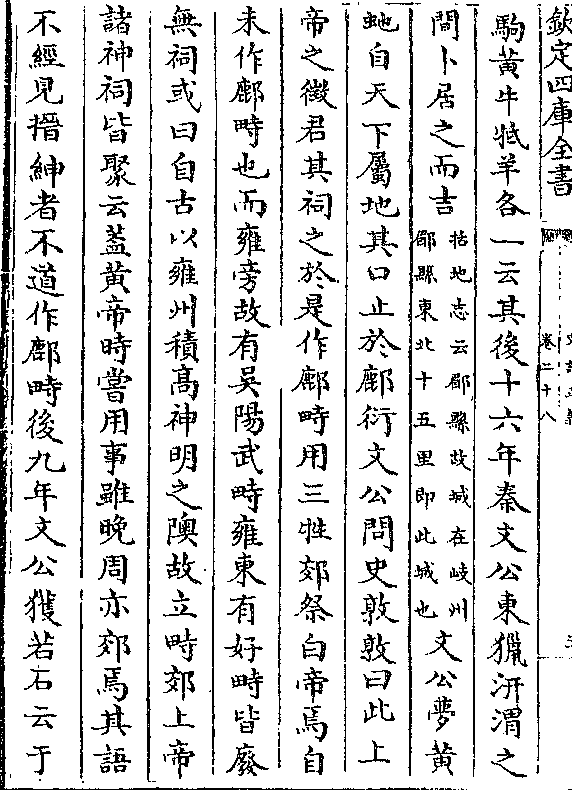 欽定四庫全書
卷二十八
駒黃牛羝羊各一云其後十六年秦文公東獵汧渭之
間卜居之而吉括地志云郿縣故城在岐州郿縣東北十五里即此城也文公夢黃
虵自天下屬地其口止於鄜衍文公問史敦敦曰此上
帝之徵君其祠之於是作鄜畤用三牲郊祭白帝焉自
未作鄜畤也而雍旁故有吳陽武畤雍東有好畤皆廢
無祠或曰自古以雍州積髙神明之隩故立畤郊上帝
諸神祠皆聚云葢黃帝時嘗用事雖晚周亦郊焉其語
不經見搢紳者不道作鄜畤後九年文公獲若石云于